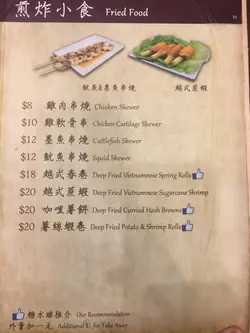 煎炸小食 Fried Food
魷魚&墨魚串燒 越式蔗蝦
$8 雞肉串燒 Chicken Skewer
$10 雞軟骨串 Chicken Cartilage Skewer
$12 墨魚串燒 Cuttlefish Skewer
$12 魷魚串燒 Squid Skewer
$18 越式春卷 Deep Fried Vietnamnese Spring Rolls
$20 越式蔗蝦 Deep Fried Vietnamese Sugarcane Shrimp
$20 咖哩薯餅 Deep Fried Curried Hash Browns
$20 薯絲蝦卷 Deep Fried Potato & Shrimp Rolls
糖水雄推介 Our Recommendation
外賣加一元 Additional $1 for Take Away